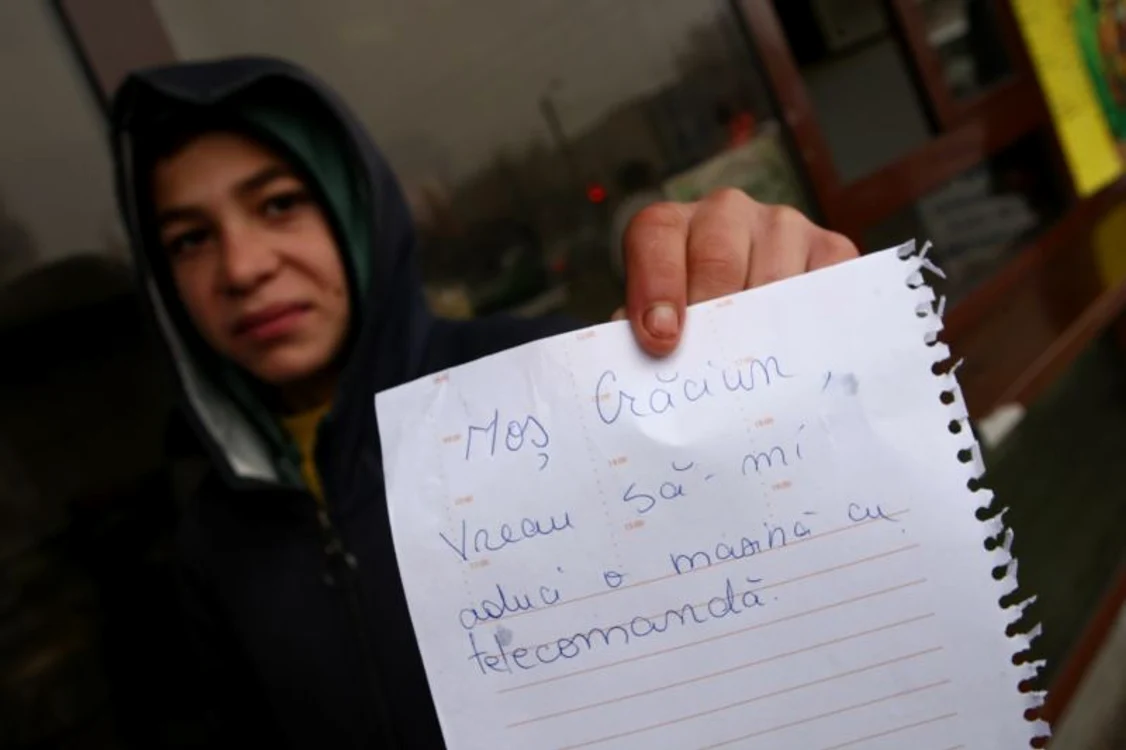 Moș Crăciun,
Vreau să-mi
aduci o masină cu
telecomandă.